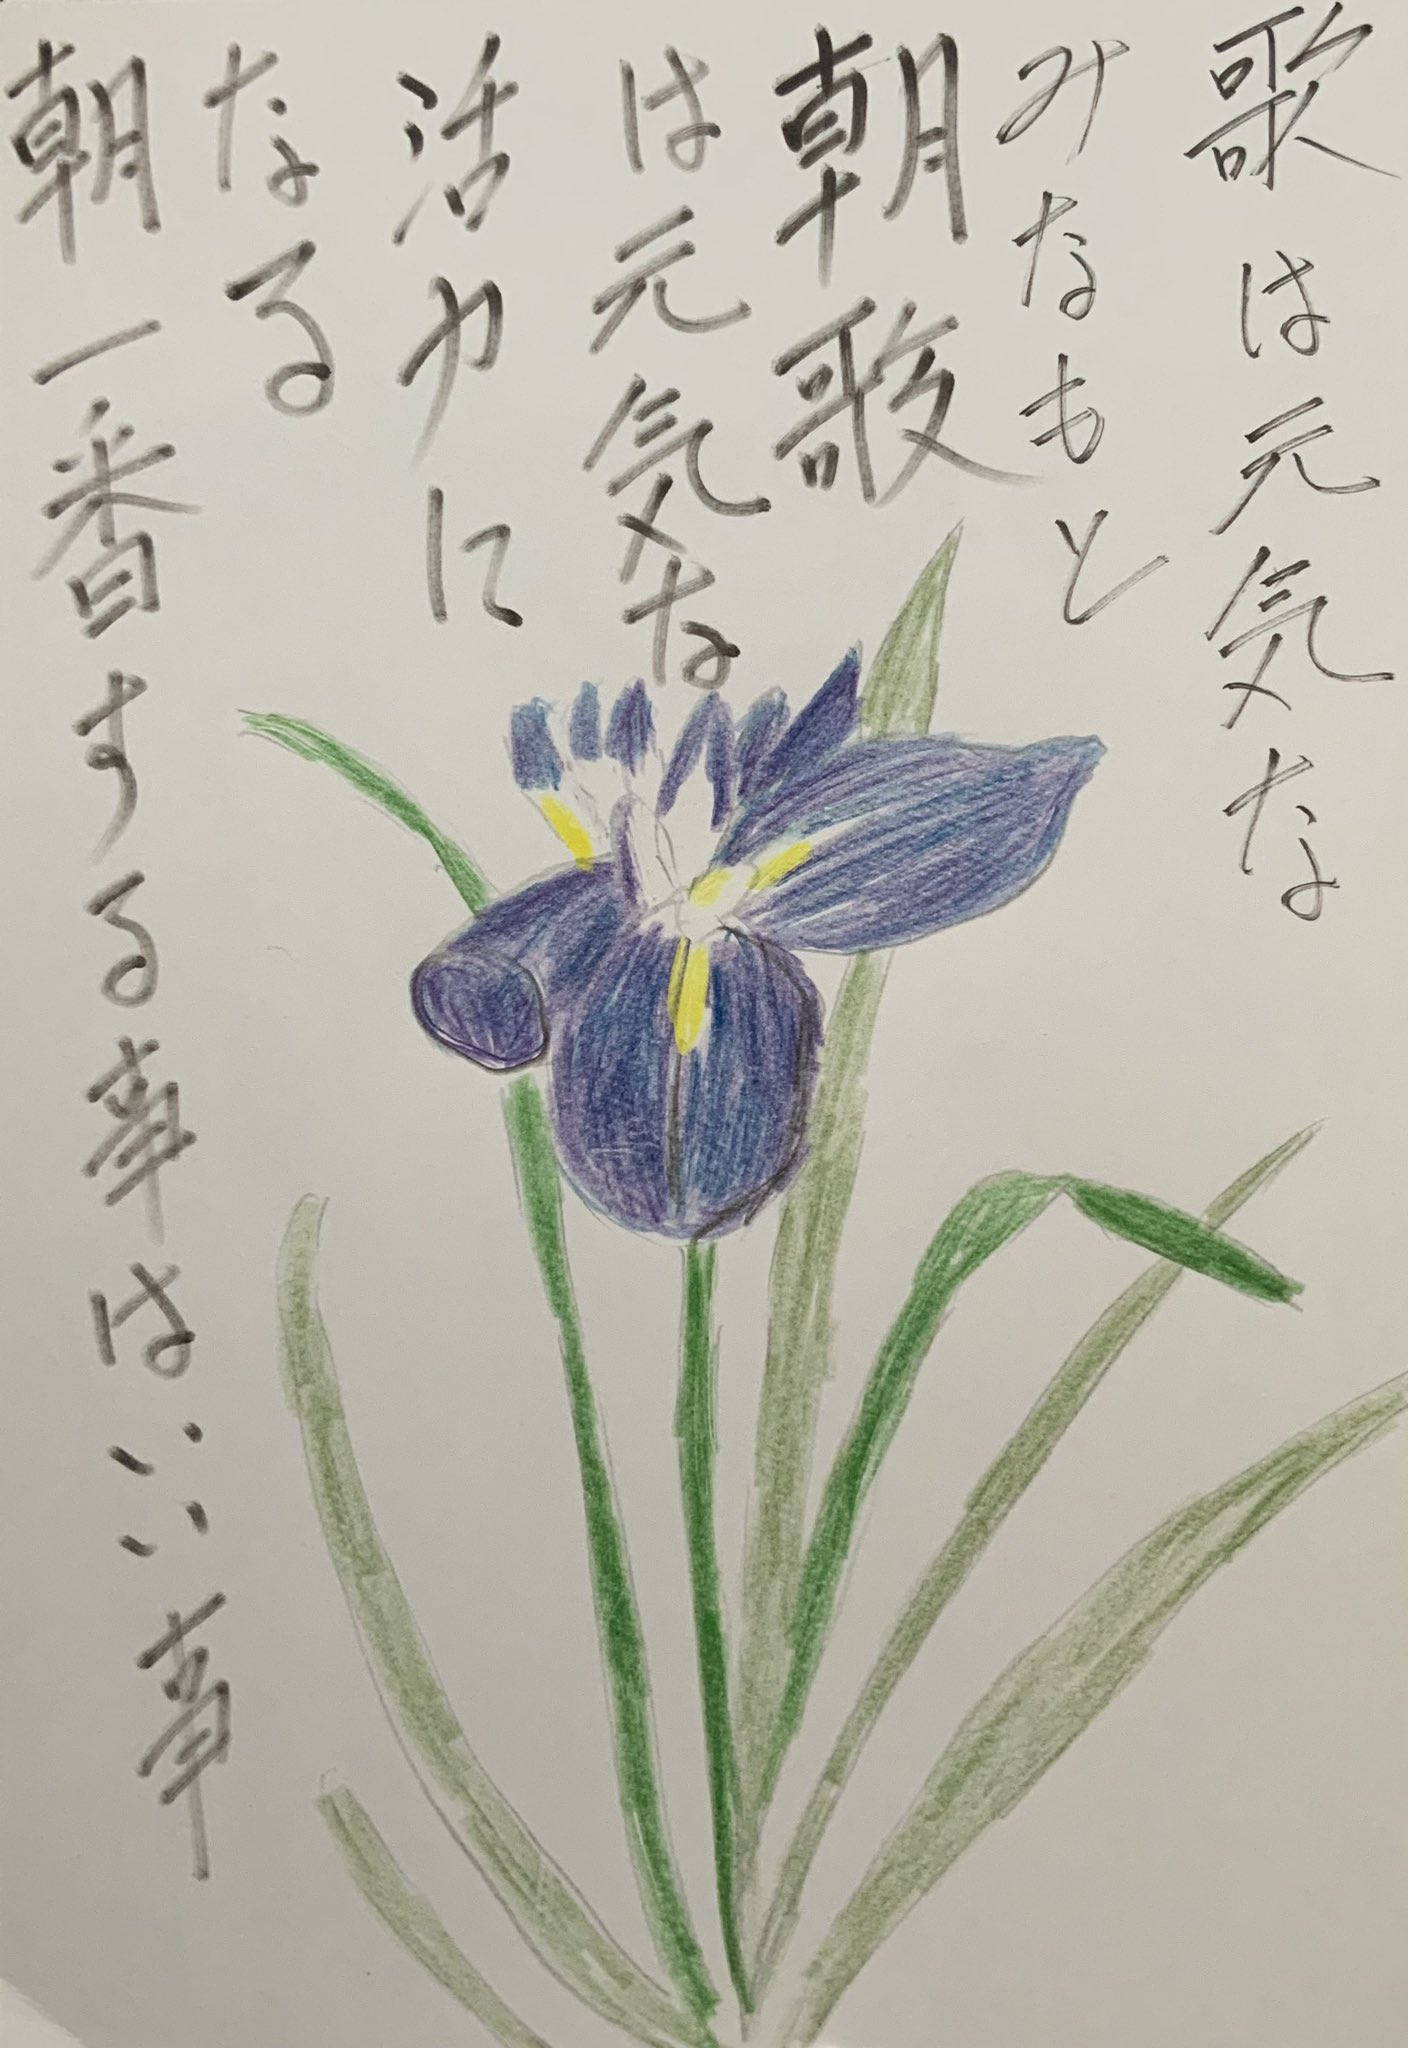 歌は元気な
みなもと
朝歌
は元気な
活力に
なる
朝一番する事はいい事